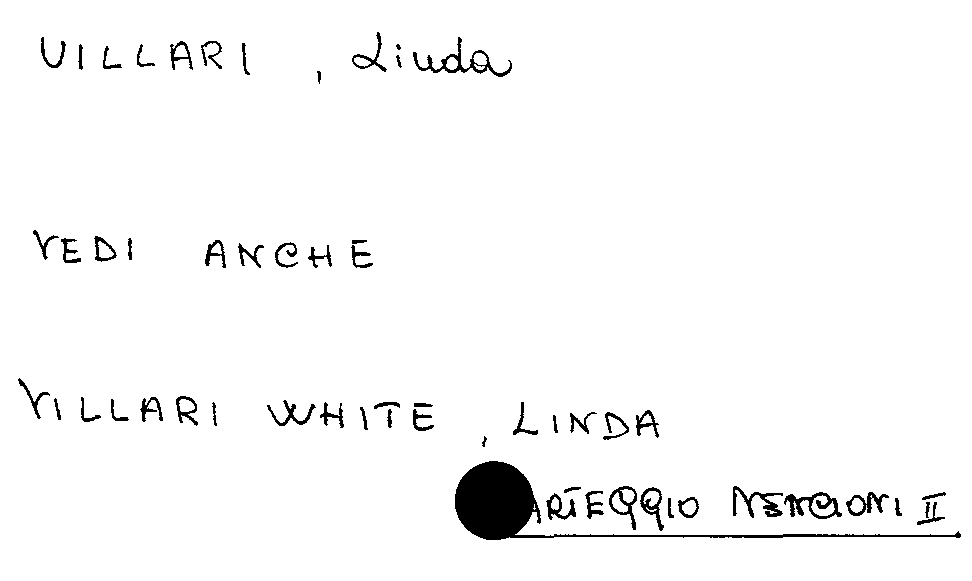 VILLARI, Linda
VEDI ANCHE
VILLARI WHITE, LINDA
ARTEGGIO NENCIONI II